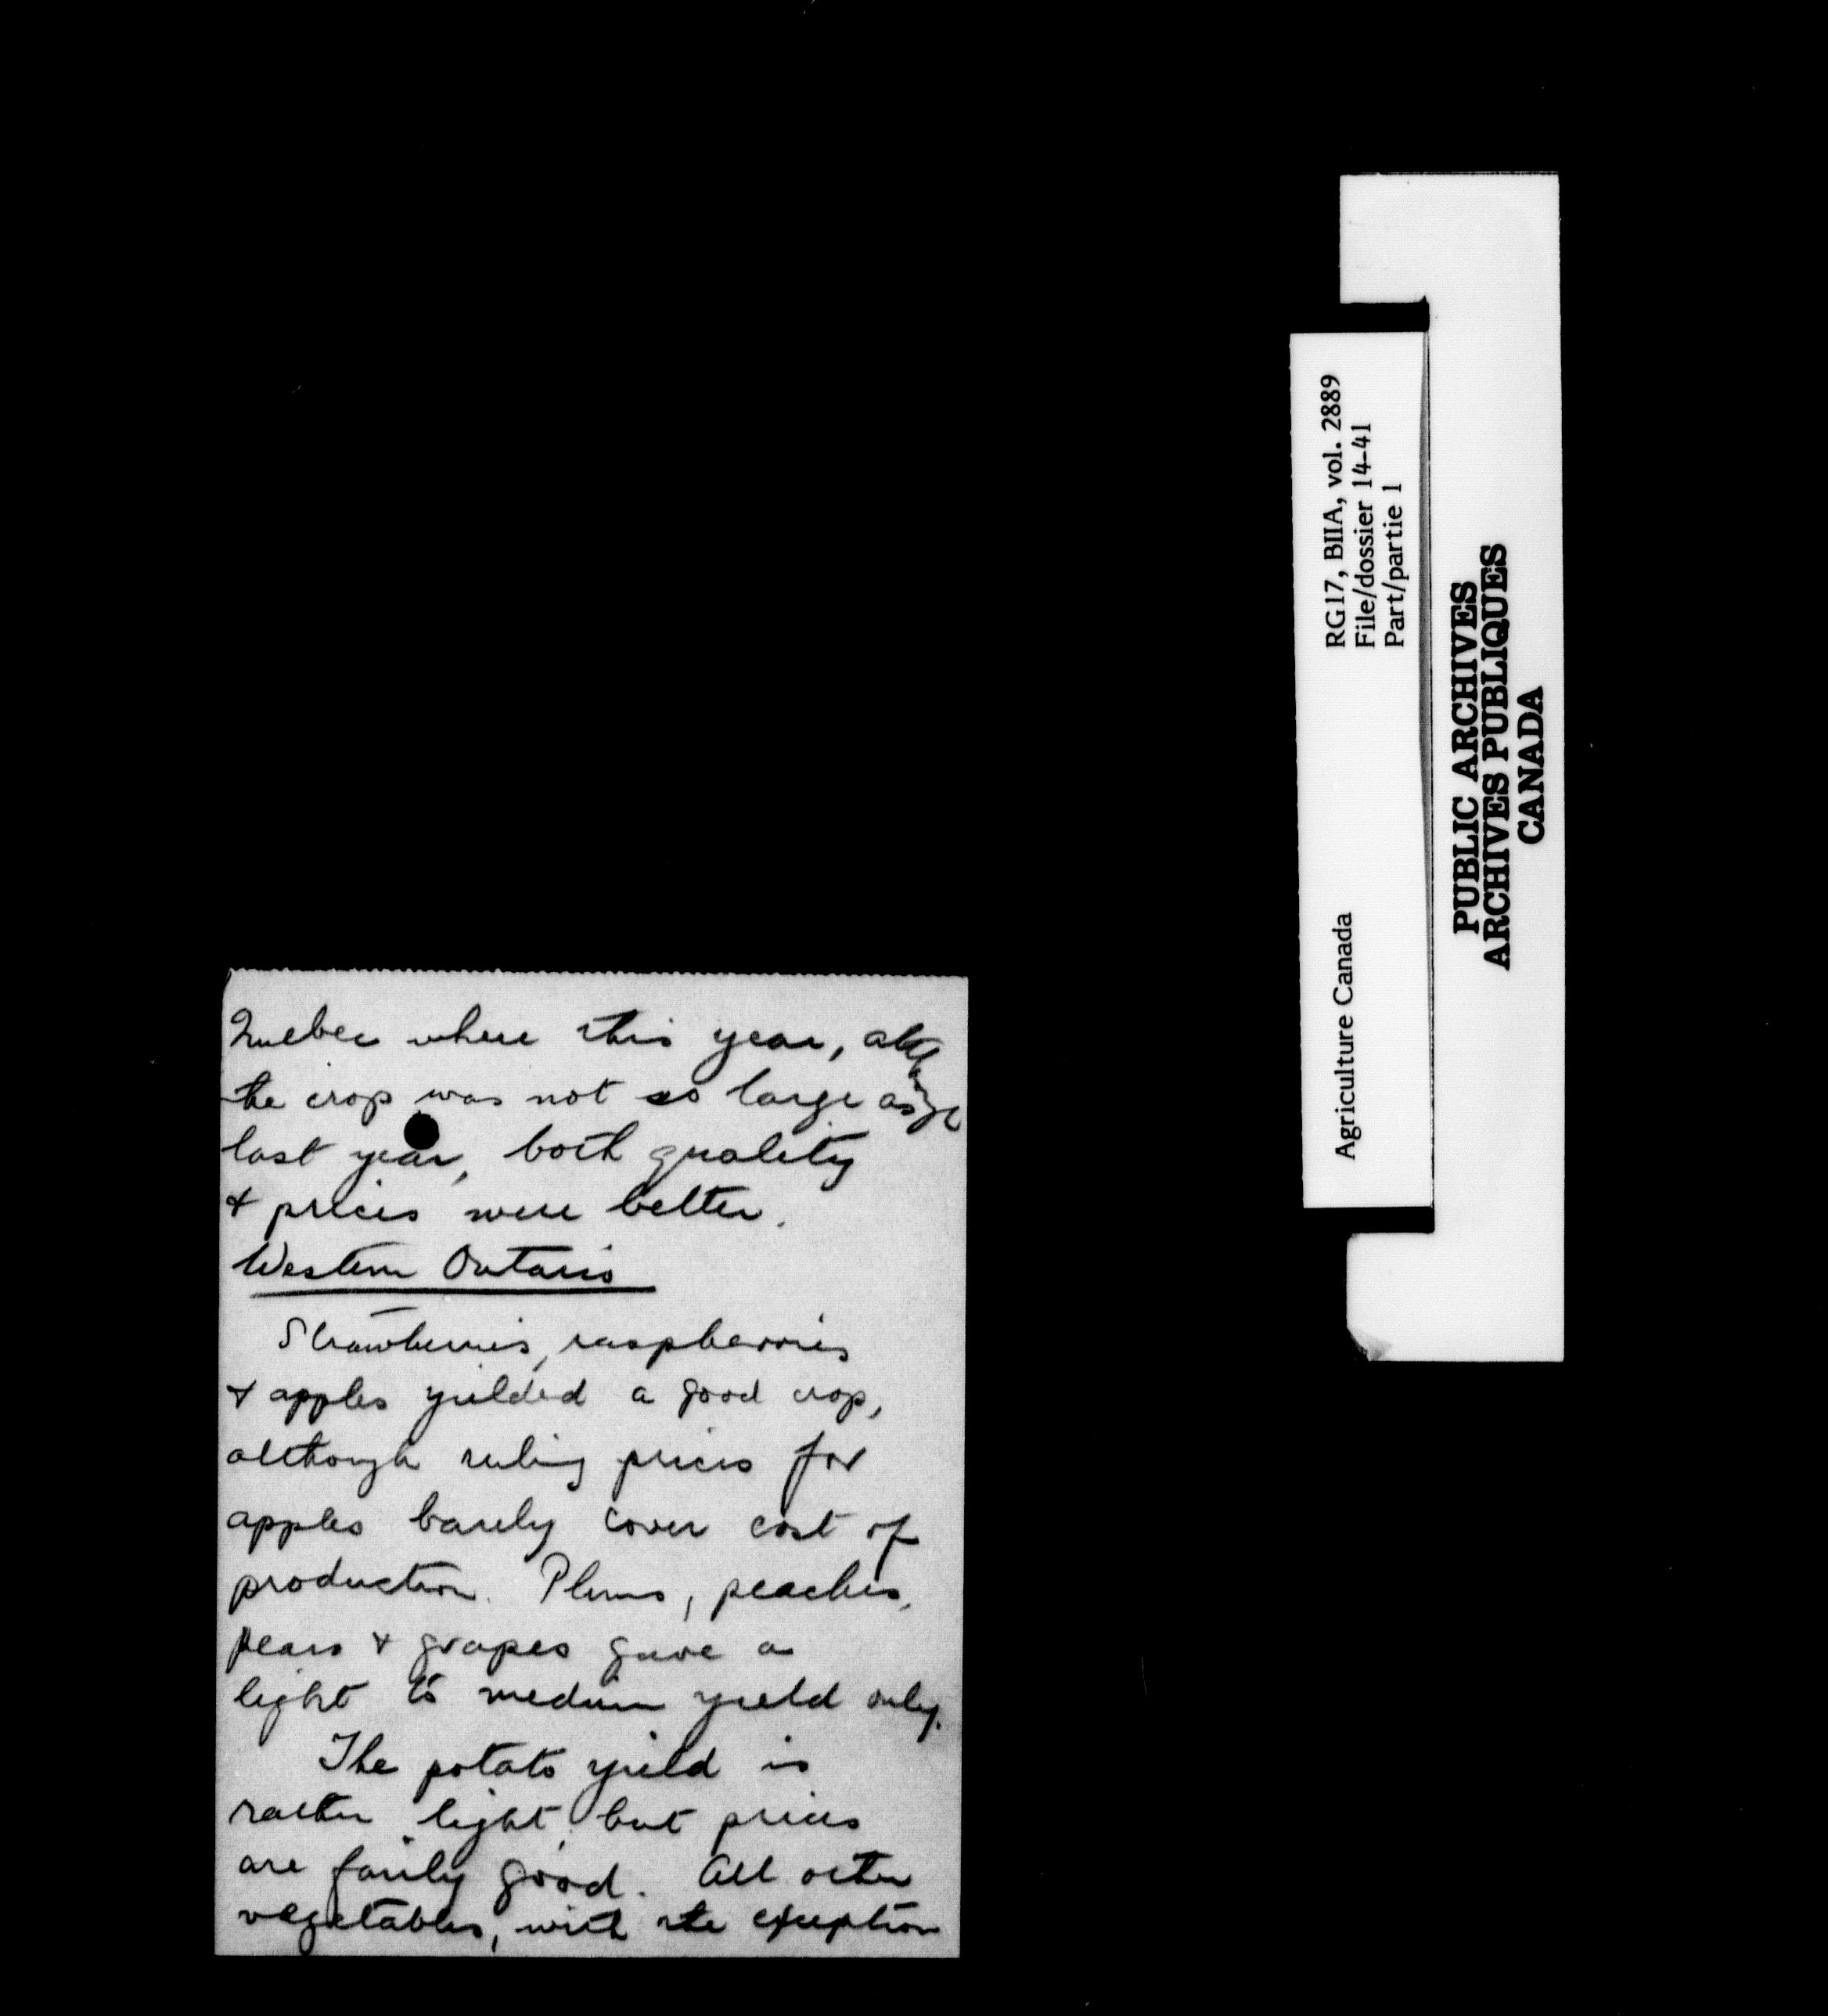 Quebec where this year, altho
the crop was not so large as
last year, both quality
& prices were better.
Western Ontario
Strawberries, raspberries
& apples yielded a good crop,
although ruling prices for
apples barely cover cost of
production. Plums, peaches,
pears & grapes gave a
light to medium yield only.
The potato yield is
rather light, but prices
are fairly good. All other
vegetables, with the exception
RG17, BIIA, vol. 2889
File/dossier 14-41
Part/partie 1
Agriculture Canada
PUBLIC ARCHIVES
ARCHIVES PUBLIQUES
CANADA